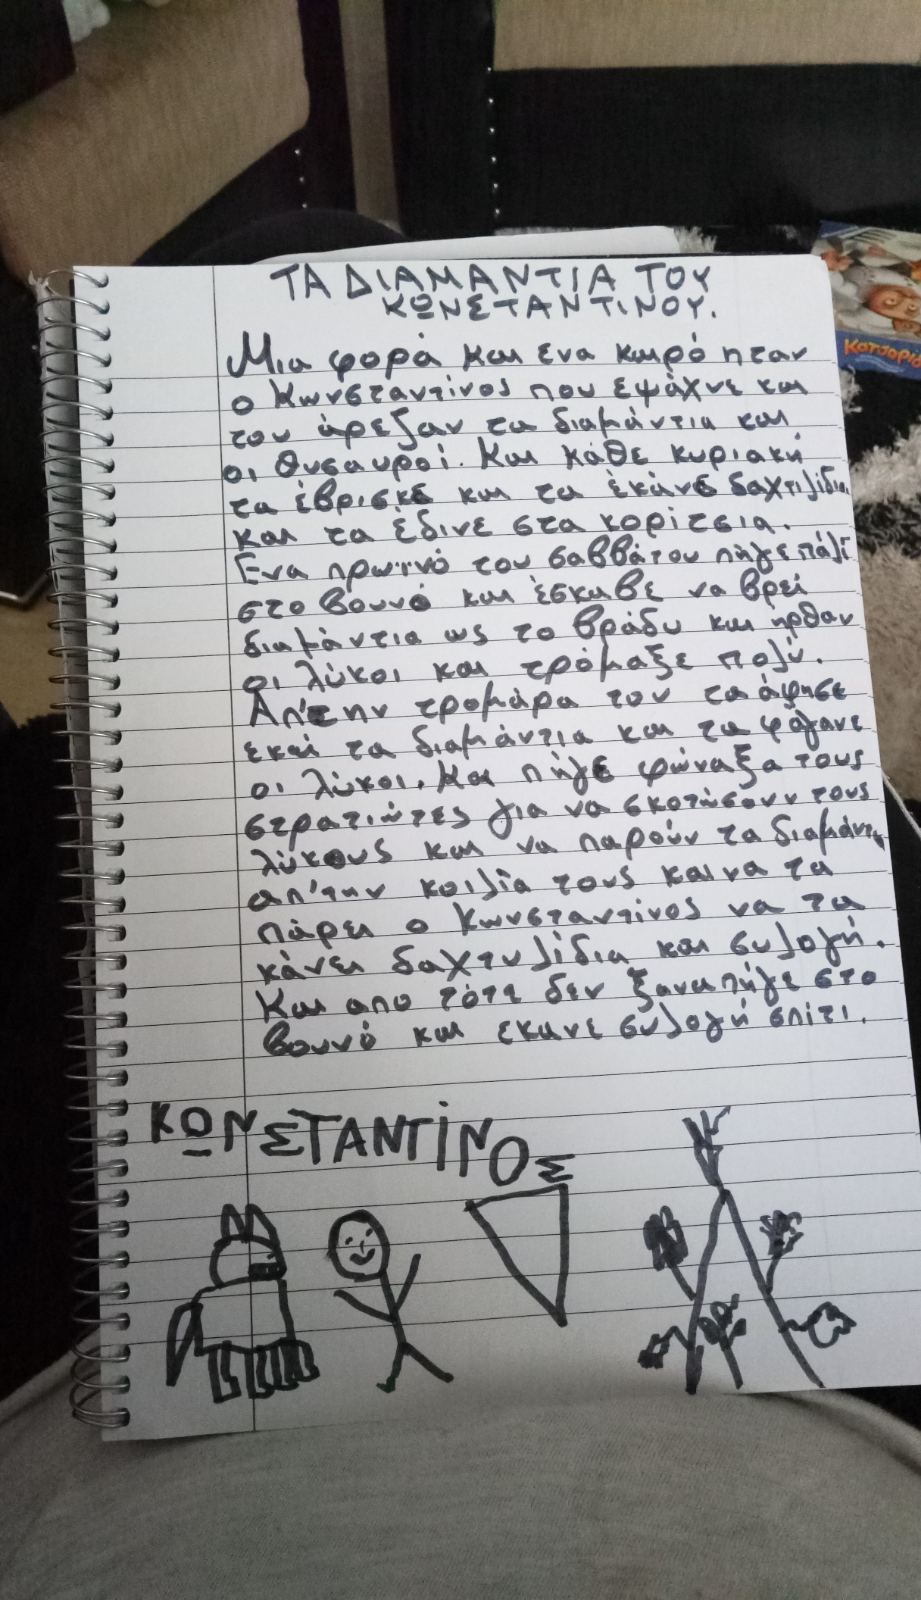 ΤΑ ΔΙΑΜΑΝΤΙΑ ΤΟΥ
ΚΩΝΣΤΑΝΤΙΝΟΥ.
Μια φορά και ενα καιρό ηταν
ο Κωνσταντίνος που έψαχνε και
του άρεζαν τα διαμάντια και
οι θυσαυροί. Και κάθε κυριακή
τα έβρισκε και τα έκανε δαχτιλίδια
και τα έδινε στα κορίτσια.
Ενα πρωινό του σαββάτου πήγε πάλι
στο βουνό και έσκαβε να βρεί
διαμάντια ως το βράδυ και ηρθαν
οι λύκοι και τρόμαξε πολύ.
Απ'την τρομάρα του τα άφησε
εκεί τα διαμάντια και τα φάγανε
οι λύκοι. Και πήγε φώναξα τους
στρατιώτες για να σκοτώσουν τους
λύκους και να παρούν τα διαμάντι
απ'την κοιλία τους και να τα
πάρει ο Κωνσταντίνος να τα
κάνει δαχτυλίδια και συλογή.
Και απο τότε δεν ξαναπήγε στο
βουνό και εκανε συλογή σπίτι.
ΚΩΝΣΤΑΝΤΙΝΟΣ
Κατσαρίδ